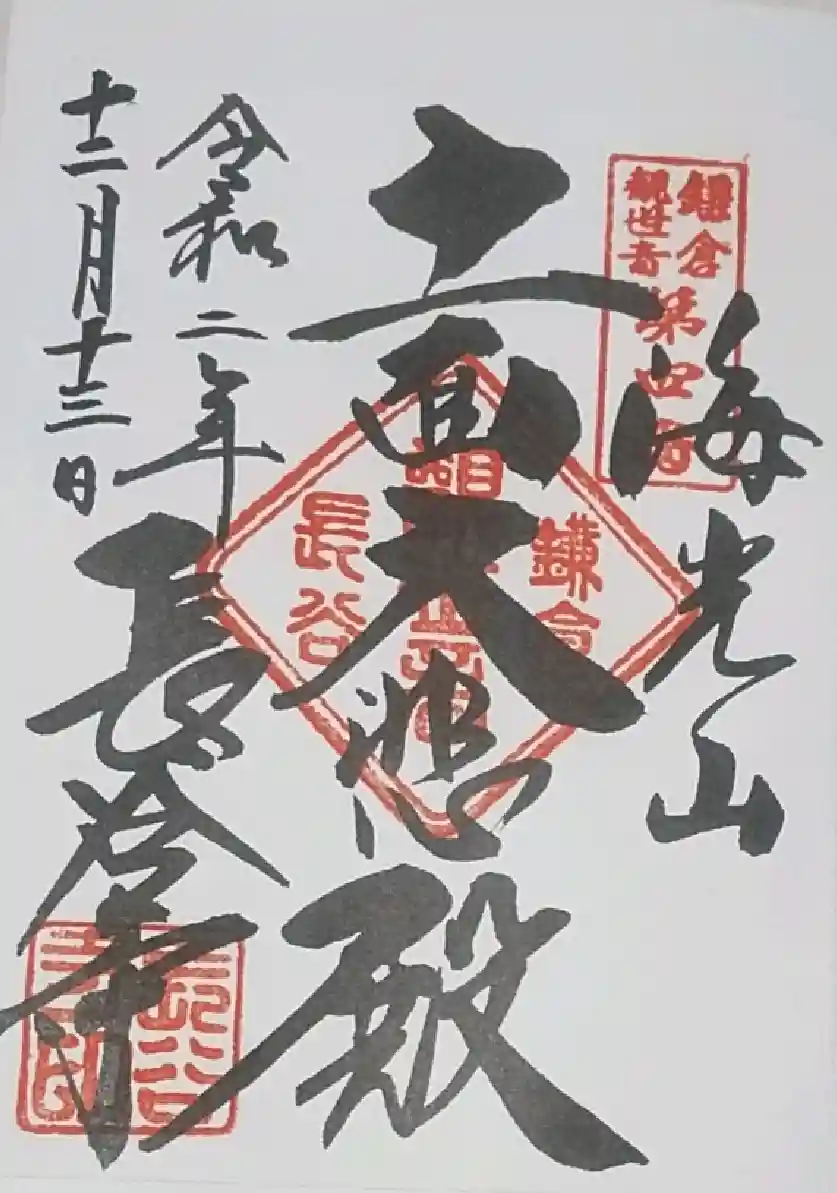 鎌倉
観世音
第四番
海光山
十一面大悲殿
鎌倉
長谷
長谷寺
令和二年
十二月十三日